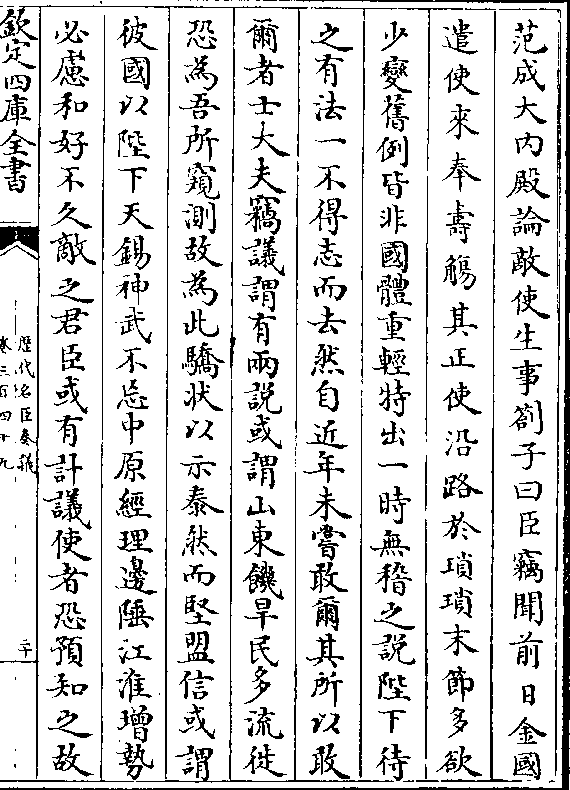 范成大内殿論敵使生事劄子曰臣竊聞前日金國
遣使來奉壽觴其正使沿路於瑣瑣末節多欲
少變舊例皆非國體重輕特出一時無稽之說陛下待
之有法一不得志而去然自近年未嘗敢爾其所以敢
爾者士大夫竊議謂有兩說或謂山東饑旱民多流徙
恐為吾所窺測故為此驕狀以示泰然而堅盟信或謂
彼國以陛下天錫神武不忘中原經理邊陲江淮增勢
必慮和好不久敵之君臣或有計議使者恐預知之故
欽定四庫全書
歷代名臣奏議
卷三百四十九
二十